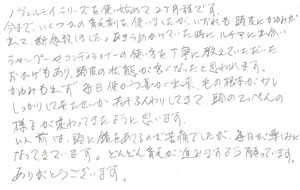 ノヴェルモイシリーズを使い始めて2ヶ月程です。
今まで、いくつかの育毛剤を使いましたが、いずれも頭皮にかゆみが
出て断念致しました。あきらめかけていた時にルチアに出会い
シャンプーやコンディショナーの使い方を丁寧に教えていただいた
おかげもあり、頭皮の状態が良くなったと思われます。
かゆみもでず毎日使かう事が出来、毛の根本が少し
しっかりして来たせいか
様子が変わってきたように思います。
以前は、頭に鏡をあてるのが苦痛でしたが、毎日が楽しみに
なってきています。どんどん育毛が進みますよう願っています。
ありがとうございます。